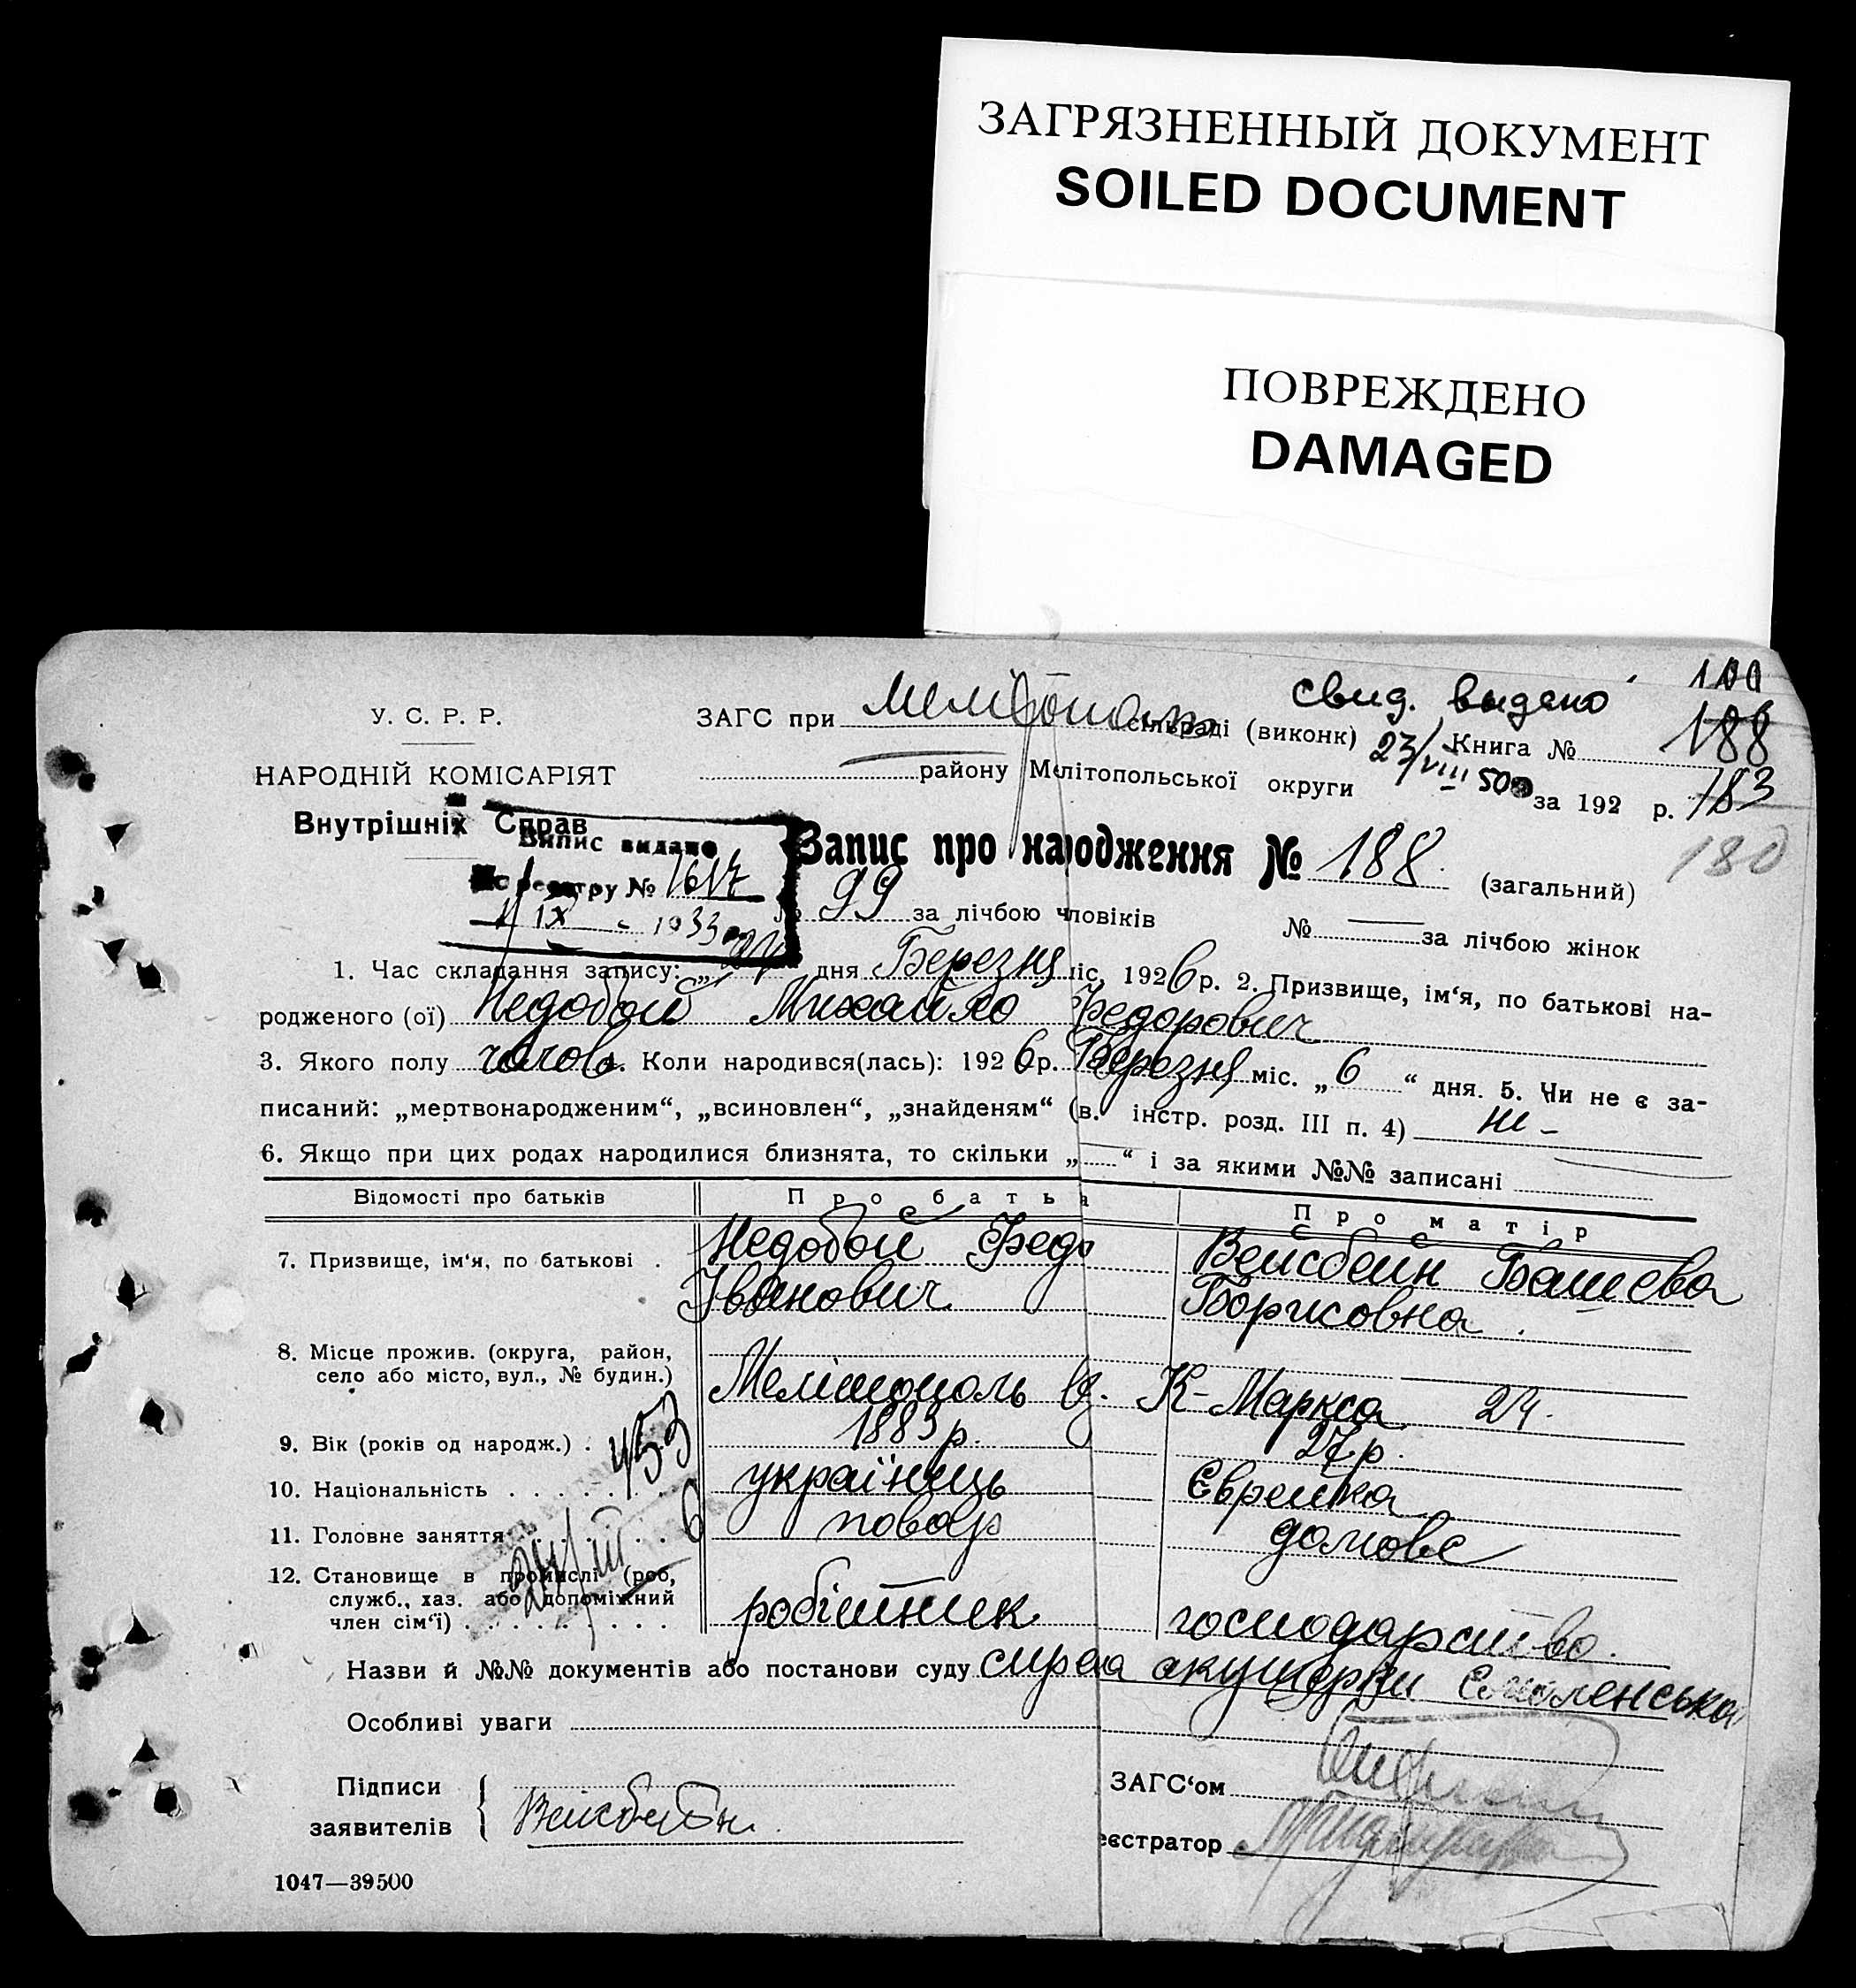 ЗАГРЯЗНЕННЫЙ ДОКУМЕНТ
SOILED DOCUMENT
ПОВРЕЖДЕНО
DAMAGED
свид. выдано
23/VIII 50
188
183
180
У. С. Р. Р.
НАРОДНІЙ КОМІСАРІЯТ
Внутрішніх Справ
ЗАГС при сільраді (виконк) Книга №
району Мелітопольської округи за 192 р.
Випис видано
по реєстру № 1617
1/IX - 1933
Запис про народження № 188. (загальний)
№ 99 за лічбою чловіків № за лічбою жінок
1. Час складання запису: „24“ дня Березня міс. 1926 р. 2. Призвище, ім‘я, по батькові на-
родженого (ої) Недобой Михайло Федорович
3. Якого полу чолов. Коли народився(лась): 1926 р. Березня міс. „6“ дня. 5. Чи не є за-
писаний: „мертвонародженим“, „всиновлен“, „знайденям“ (в. інстр. розд. III п. 4) ні -
6. Якщо при цих родах народилися близнята, то скільки „ “ і за якими №№ записані
Відомості про батьків Про батьк Про матір
7. Призвище, ім‘я, по батькові . Недобой Федо Вейсбейн Башева
Іванович Борисовна .
8. Місце прожив. (округа, район,
село або місто, вул., № будин.) Мелітополь в. К-Маркса 24.
9. Вік (років од народж.) . 1883 р. 27 р.
10. Національність українець Єврейка
11. Головне заняття повар домове
12. Становище в промислі (роб,
служб., хаз. або допоміжний
член сім‘ї) робітник господарство.
453
24/III 6
Назви й №№ документів або постанови суду справа акушерки Смоленська
Особливі уваги
Підписи
заявителів Вейсбейн.
ЗАГС‘ом
еєстратор
1047—39500